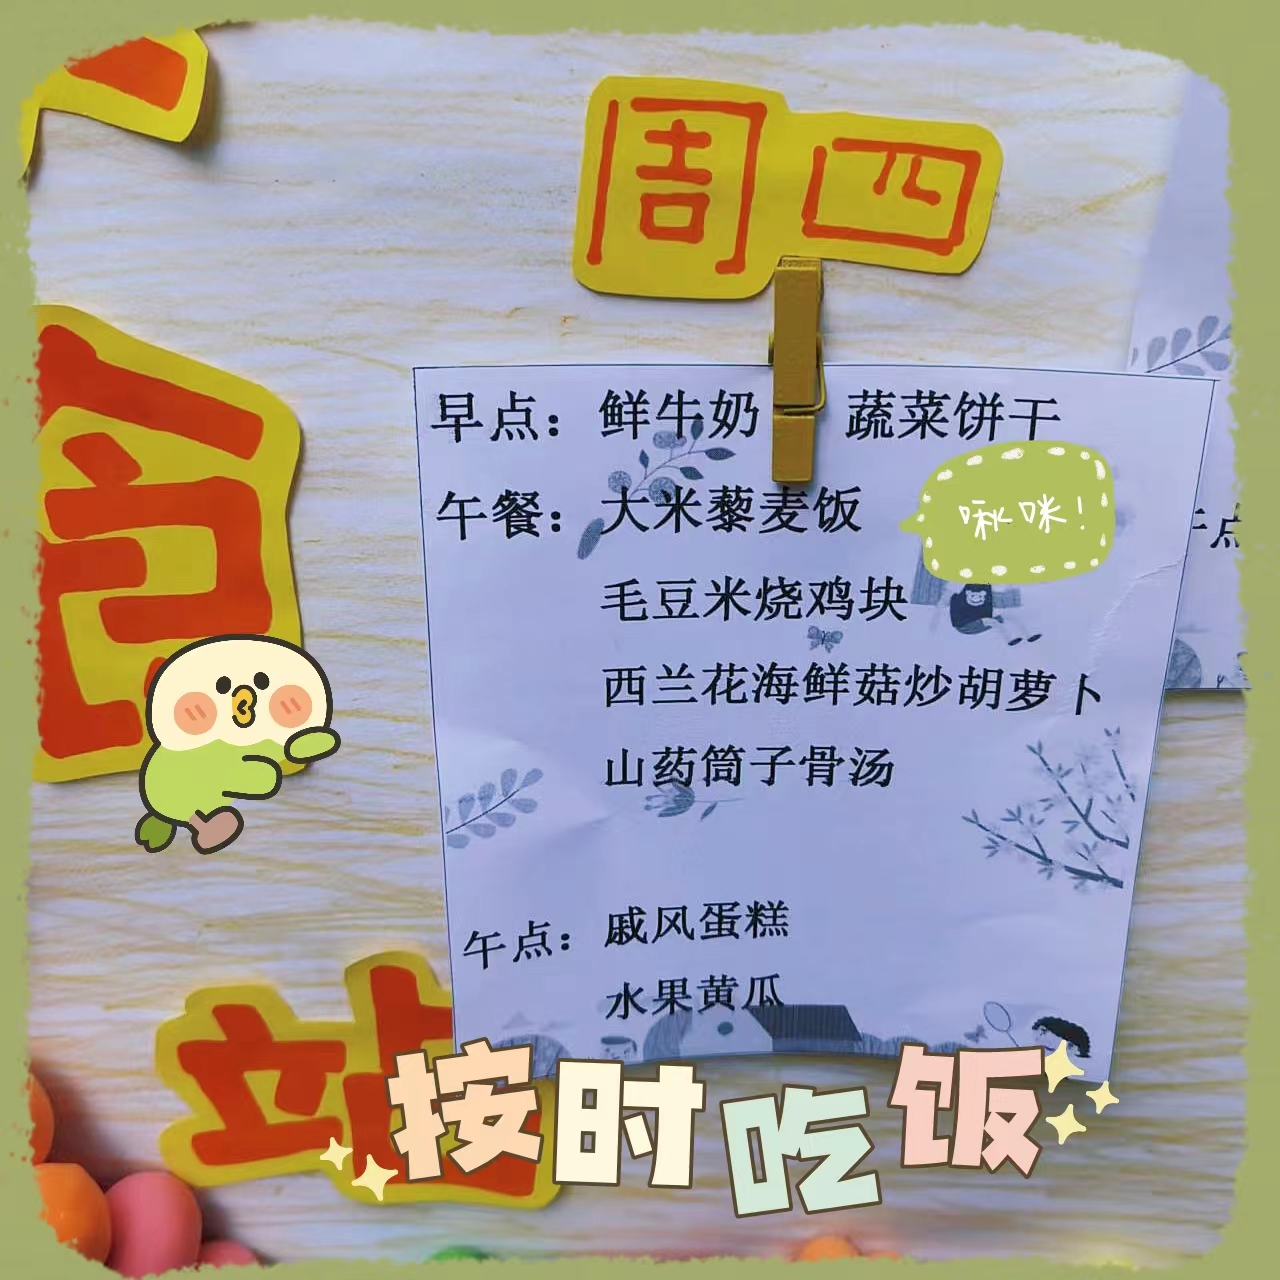 周四
早点：鲜牛奶 蔬菜饼干
午餐：大米藜麦饭
啾咪！
毛豆米烧鸡块
西兰花海鲜菇炒胡萝卜
山药筒子骨汤
午点：戚风蛋糕
水果黄瓜
午点
站
按时吃饭